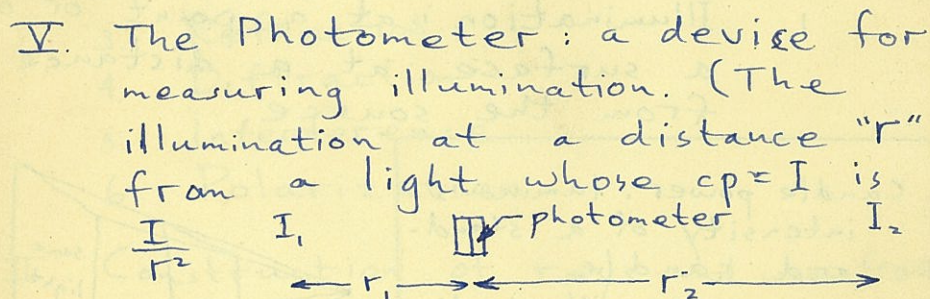 V. The Photometer: a device for
measuring illumination. (The
illumination at a distance "r"
from a light whose cp = I is
I/r² I₁ photometer I₂
r₁ r₂